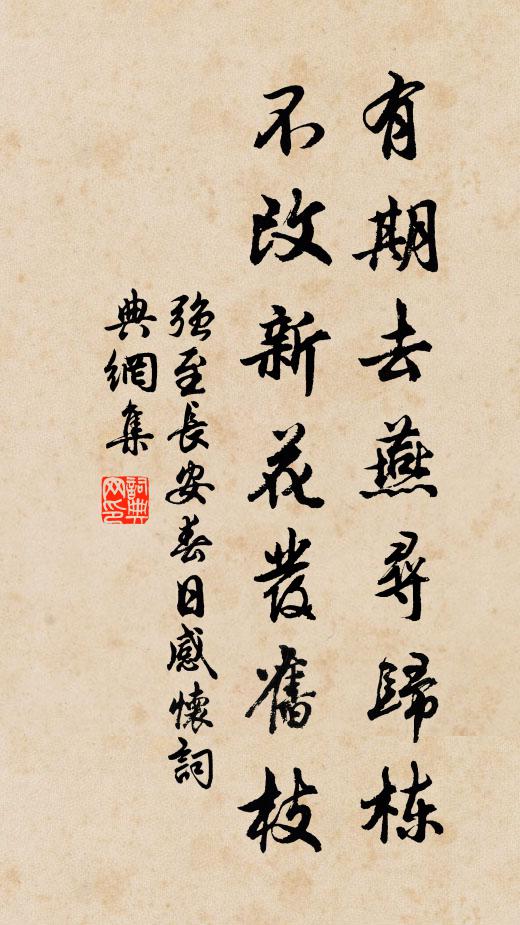 有期去燕尋歸棟
不改新花發舊枝
強至長安春日感懷詞
典網集
詞典網印